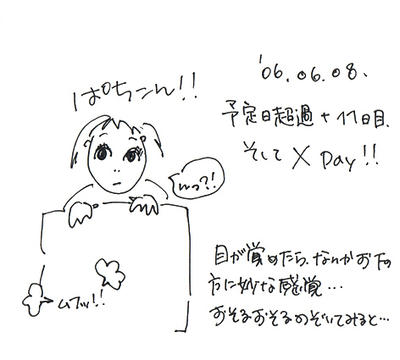 '06.06.08、
ぱちーん!!
予定日超過+11日目、
そして X Day!!
んっ?!
目が覚めたら、なんかお下の
方に妙な感覚…
おそるおそるのぞいてみると…
ムフッ!!